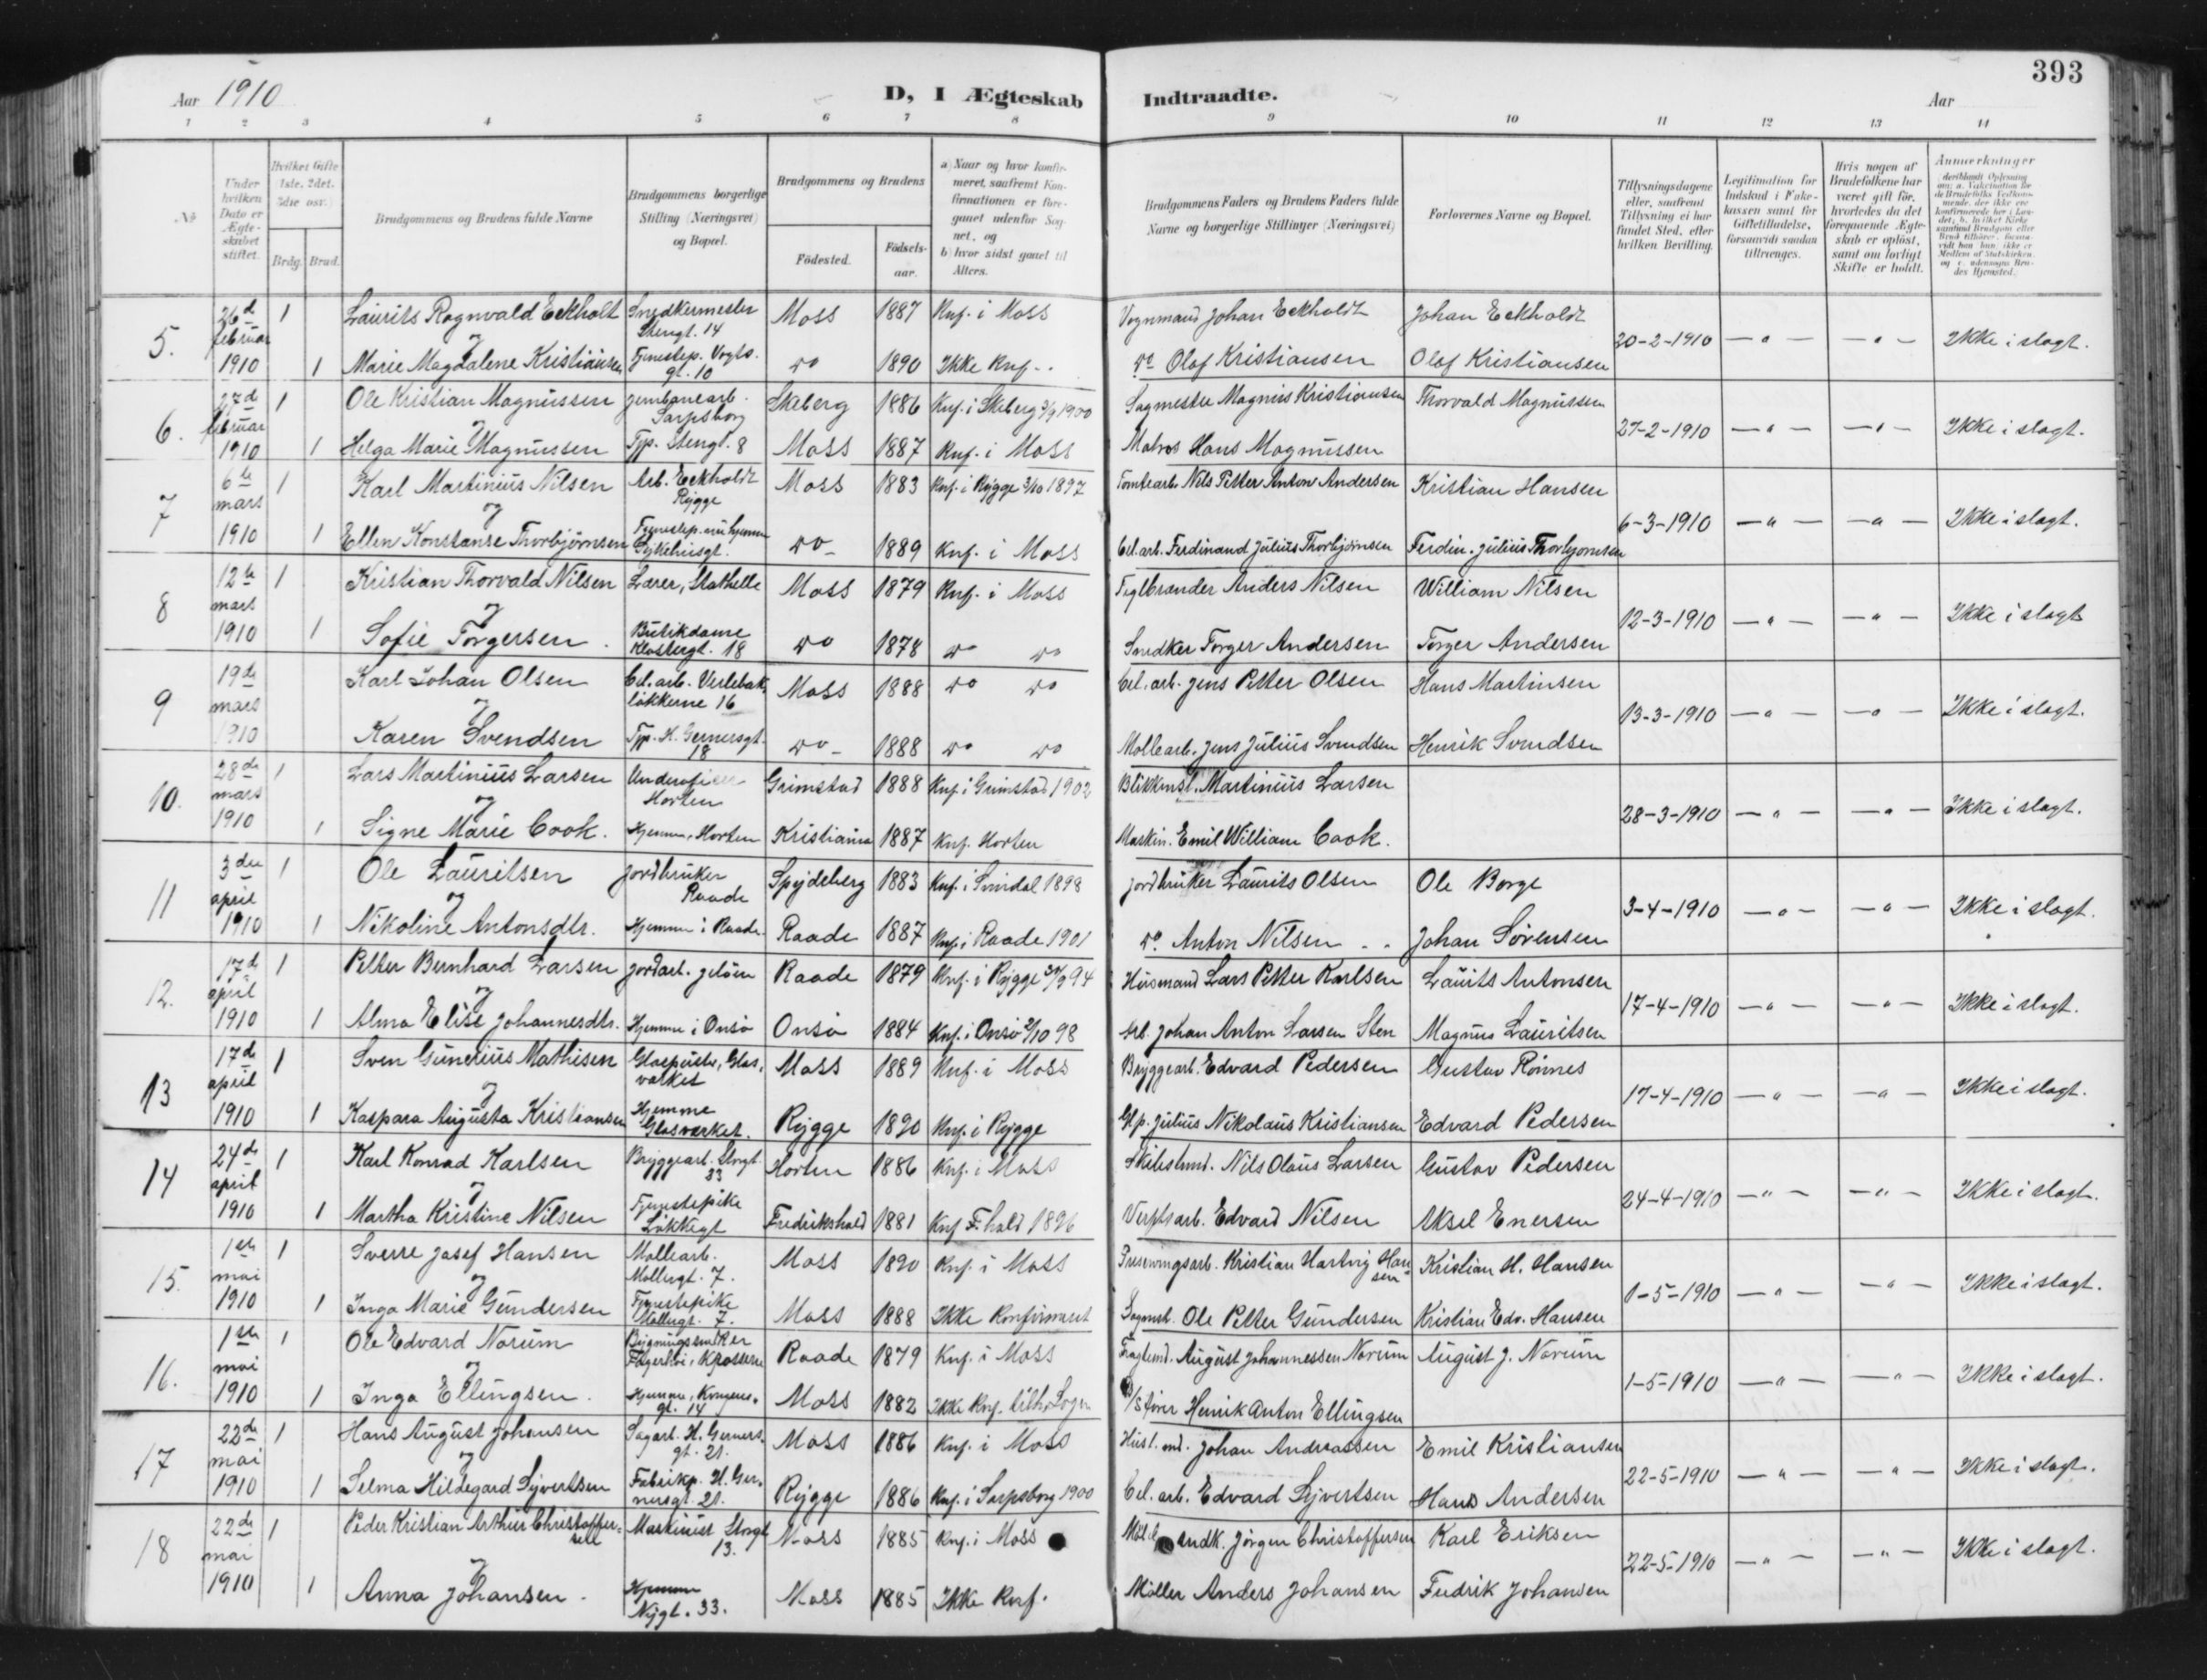 393
Aar 1910 D, I Ægteskab Indtraadte. Aar
1 2 3 4 5 6 7 8 9 10 11 12 13 14
№
Under hvilken Dato er Ægteskabet stiftet.
Hvilket Gifte (1ste, 2det, 3die osv.)
Brdg. Brud.
Brudgommens og Brudens fulde Navne
Brudgommens borgerlige Stilling (Næringsvei) og Bopæl.
Brudgommens og Brudens
Födested.
Födsels-aar.
a) Naar og hvor konfirmeret, saafremt Konfirmationen er foregaaet udenfor Sognet, og
b) hvor sidst gaaet til Alters.
Brudgommens Faders og Brudens Faders fulde Navne og borgerlige Stillinger (Næringsvei)
Forlovernes Navne og Bopæl.
Tillysningsdagene eller, saafremt Tillysning ei har fundet Sted, efter hvilken Bevilling.
Legitimation for Indskud i Enkekassen samt for Giftetilladelse, forsaavidt saadan tiltrænges.
Hvis nogen af Brudefolkene har været gift för, hvorledes da det foregaaende Ægteskab er oplöst, samt om lovligt Skifte er holdt.
Anmærkninger
5. 26de februar 1910 1 Laurits Ragnvald Eckholt Snedkermester Stengt. 14 Moss 1887 Knf. i Moss Vognmand Johan Eckholdt Johan Eckholdt
og
1 Marie Magdalene Kristiansen Tjenestep. Vogts. gt. 10 do 1890 Ikke Knf. do Olaf Kristiansen Olaf Kristiansen 20-2-1910 — " — — " — Ikke i slagt.
6. 27de februar 1910 1 Ole Kristian Magnussen Jernbanearb. Sarpsborg Skeberg 1886 Knf. i Skeberg 1900 Sagmester Magnus Kristiansen Thorvald Magnussen
og
1 Helga Marie Magnussen Tjp. Stengt. 8 Moss 1887 Knf. i Moss Matros Hans Magnussen 27-2-1910 — " — — " — Ikke i slagt.
7 6te mars 1910 1 Karl Martinius Nilsen Arb. Eekholdt Rygge Moss 1883 Knf. i Rygge 3/10 1897 Tomtearb. Nils Petter Anton Andersen Kristian Hansen
og
1 Ellen Konstanse Thorbjørnsen Tjenestep. nu hjemme do 1889 Knf. i Moss Cel. arb. Ferdinand Julius Thorbjørnsen Ferdin. Julius Thorbjornsen 6-3-1910 — " — — " — Ikke i slagt.
8 12te mars 1910 1 Kristian Thorvald Nilsen Lærer, Stathelle Moss 1879 Knf. i Moss Teglbrænder Anders Nilsen William Nilsen
og
1 Sofie Torgersen Butikdame Klostergt. 18 do 1878 do do Snedker Torger Andersen Torger Andersen 12-3-1910 — " — — " — Ikke i slagt
9 19de mars 1910 Karl Johan Olsen Cel. arb. Verlebak. løkkerne 16 Moss 1888 do do Cel. arb. Jens Petter Olsen Hans Martinsen
og
Karen Svendsen Tjp. H. Gernersgt. 18 do 1888 do do Møllearb. Jens Julius Svendsen Henrik Svendsen 13-3-1910 — " — — " — Ikke i slagt.
10. 28de mars 1910 1 Lars Martinius Larsen Underofi Horten Grimstad 1888 Knf. i Grimstad 1902 Blikkensl. Martinius Larsen
og
1 Signe Marie Cook. Hjemme, Horten Kristiania 1887 Knf. Horten Maskin. Emil William Cook. 28-3-1910 — " — — " — Ikke i slagt.
11 3die april 1910 1 Ole Lauritsen Jordbruker Raade Spydeberg 1883 Knf. i Svindal 1898 Jordbruker Laurits Olsen Ole Borge
og
1 Nikoline Antonsdtr. Hjemme i Raade. Raade 1887 Knf. i Raade 1901 do Anton Nilsen Johan Sørensen 3-4-1910 — " — — " — Ikke i slagt.
12. 17de april 1910 1 Petter Bernhard Larsen Jordarb. Jeløen Raade 1879 Knf. i Rygge 94 Husmand Lars Petter Karlsen Laurits Antonsen
og
1 Alma Elise Johannesdtr. Hjemme i Onsø Onsø 1884 Knf. i Onsø 2/10 98 Arb. Johan Anton Larsen Sten Magnus Lauritsen 17-4-1910 — " — — " — Ikke i slagt.
13 17de april 1910 1 Sven Gunerius Mathisen Glaspuster, Glas. værket Moss 1889 Knf. i Moss Bryggearb. Edvard Pedersen Gustav Rønnes
og
1 Kaspara Augusta Kristiansen Hjemme Glasværket. Rygge 1890 Knf. i Rygge Glp. Julius Nikolaus Kristiansen Edvard Pedersen 17-4-1910 — " — — " — Ikke i slagt.
14 24de april 1910 1 Karl Konrad Karlsen Bryggearb. Storgt. 33 Horten 1886 Knf. i Moss Nils Olaus Larsen Gustav Pedersen
og
1 Martha Kristine Nilsen Tjenestepike Løkkegt Fredrikshald 1881 Knf F.hald 1896 Verftsarb. Edvard Nilsen Aksel Enersen 24-4-1910 — " — — " — Ikke i slagt.
15. 1ste mai 1910 1 Sverre Josef Hansen Møllearb. Møllergt. 7. Moss 1890 Knf. i Moss Preserningsarb. Kristian Hartvig Hansen Kristian H. Hansen
og
1 Inga Marie Gundersen Tjenestepike Møllergt. 7. Moss 1888 Ikke Konfirmert Sagmst. Ole Petter Gundersen Kristian Edv. Hansen 1-5-1910 — " — — " — Ikke i slagt.
16. 1ste mai 1910 1 Ole Edvard Norum Bygningssnedker Raade 1879 Knf. i Moss August Johannessen Norum August J. Norum
og
1 Inga Ellingsen. Hjemme, Kongens. gt. 14 Moss 1882 Ikke Knf. D/S fører Henrik Anton Ellingsen 1-5-1910 — " — — " — Ikke i slagt.
17 22de mai 1910 1 Hans August Johansen Sagarb. H. Gerners. gt. 21. Moss 1886 Knf. i Moss Johan Andreassen Emil Kristiansen
og
1 Selma Hildegard Syvertsen Fabrikp. H. Gernersgt. 21. Rygge 1886 Knf. i Sarpsborg 1900 Cel. arb. Edvard Syvertsen Hans Andersen 22-5-1910 — " — — " — Ikke i slagt.
18 22de mai 1910 1 Peder Kristian Arthur Christoffersen Maskinist Storgt 13. Moss 1885 Knf. i Moss sndk. Jørgen Christoffersen Karl Eriksen
og
1 Anna Johansen. Hjemme Nygt. 33. Moss 1885 Ikke Knf. Møller Anders Johansen Fredrik Johansen 22-5-1910 — " — — " — Ikke i slagt.